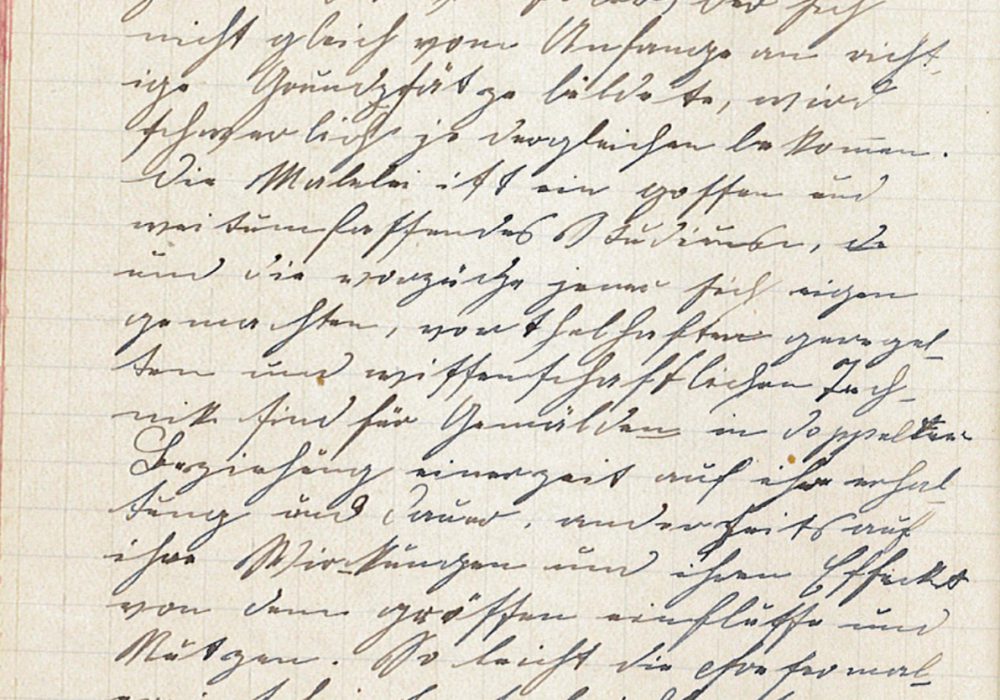 der sich
nicht gleich vom Anfange an richt-
ige Grundsätze bildete, wird
schwerlich je dergleichen bekommen.
Die Malelei ist ein gossen und
weitumfassendes Studiums,
und die vorzüche jener sich eigen
gemachten, vorthelhaften geregel-
ten und wissenschaftlichen Tech-
nik sind für Gemälden in doppelter
Beziehung einerzeit auf ihre erhal-
tung und Dauer, anderseits auf
ihre Wirckungen und ihren Effeckt
von dem grössten einflusse und
Nutzen. So leicht die